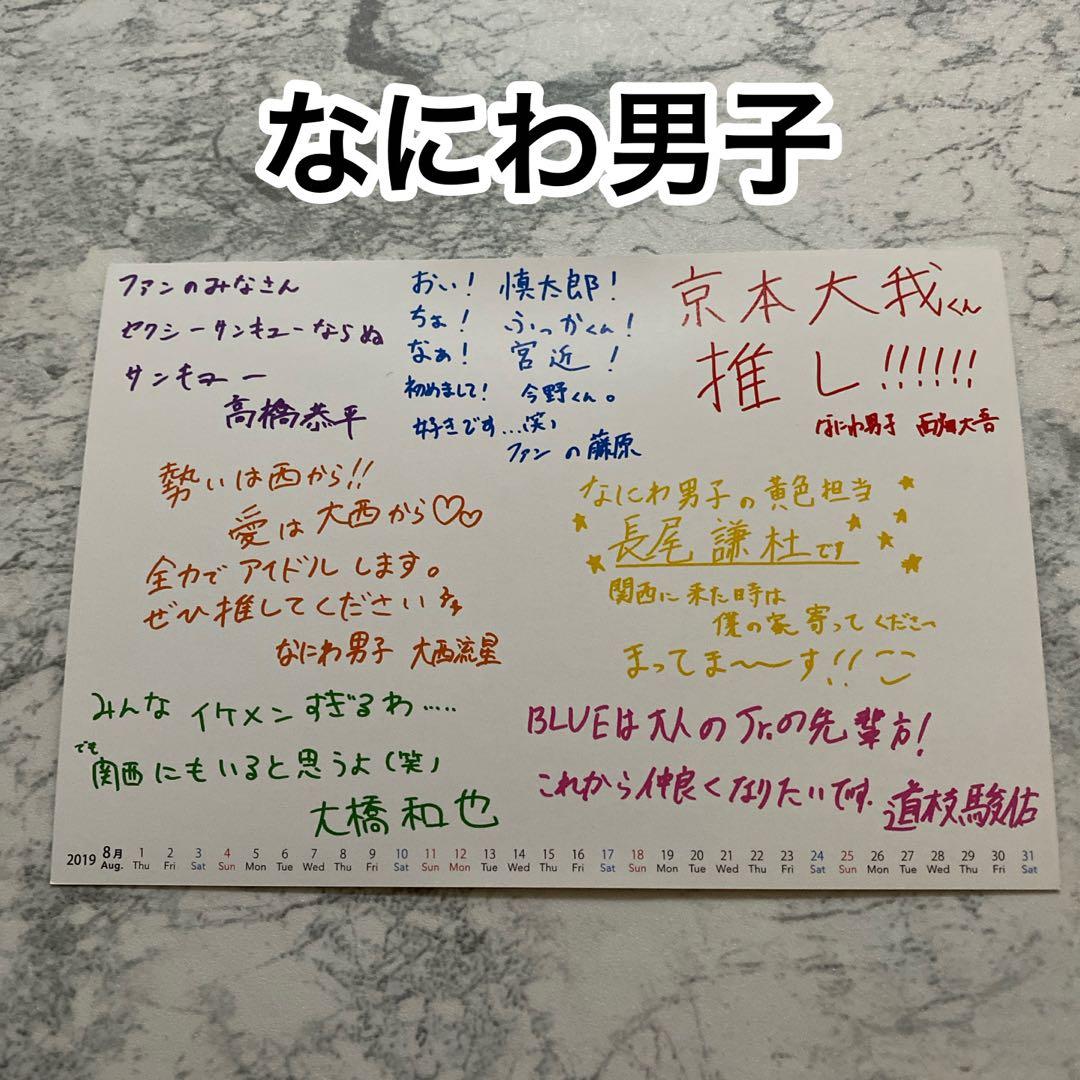 なにわ男子
ファンのみなさん
セクシーサンキューならぬ
サンキュー
高橋恭平
おい! 慎太郎!
ちょ! ふっかくん!
なぁ! 宮近!
初めまして! 今野くん。
好きです…(笑)
ファンの藤原
京本大我くん
推し!!!!!!
なにわ男子 西畑大吾
勢いは西から!!
愛は大西から♡♡
全力でアイドルします。
ぜひ推してください
なにわ男子 大西流星
なにわ男子の黄色担当
長尾謙杜です
関西に来た時は
僕の家寄ってくださ〜
まってま〜〜す!!
みんなイケメンすぎるわ……
でも
関西にもいると思うよ(笑)
大橋和也
BLUEは大人のJr.の先輩方!
これから仲良くなりたいです.
道枝駿佑
2019 8月 1 2 3 4 5 6 7 8 9 10 11 12 13 14 15 16 17 18 19 20 21 22 23 24 25 26 27 28 29 30 31
Aug. Thu Fri Sat Sun Mon Tue Wed Thu Fri Sat Sun Mon Tue Wed Thu Fri Sat Sun Mon Tue Wed Thu Fri Sat Sun Mon Tue Wed Thu Fri Sat